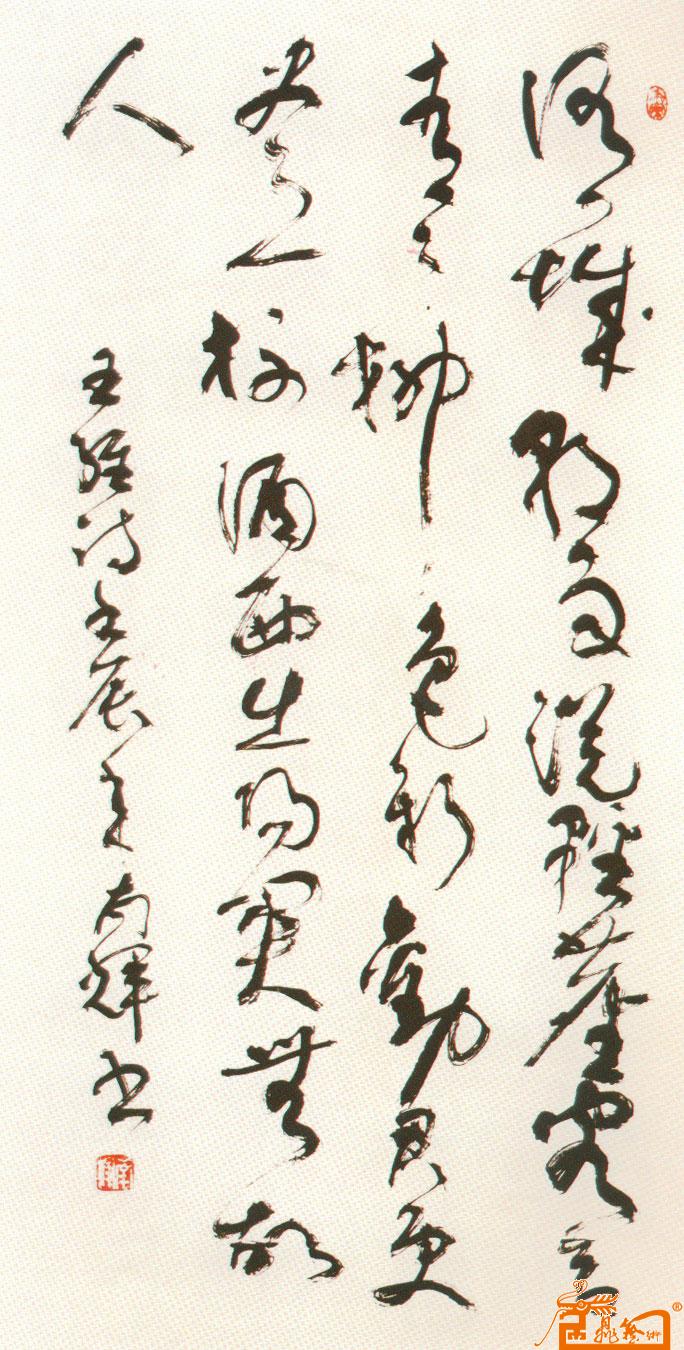 渭城朝雨浥輕塵客舍
青々柳色新勸君更
盡一杯酒西出陽關無故
人
王維詩壬辰年輝书